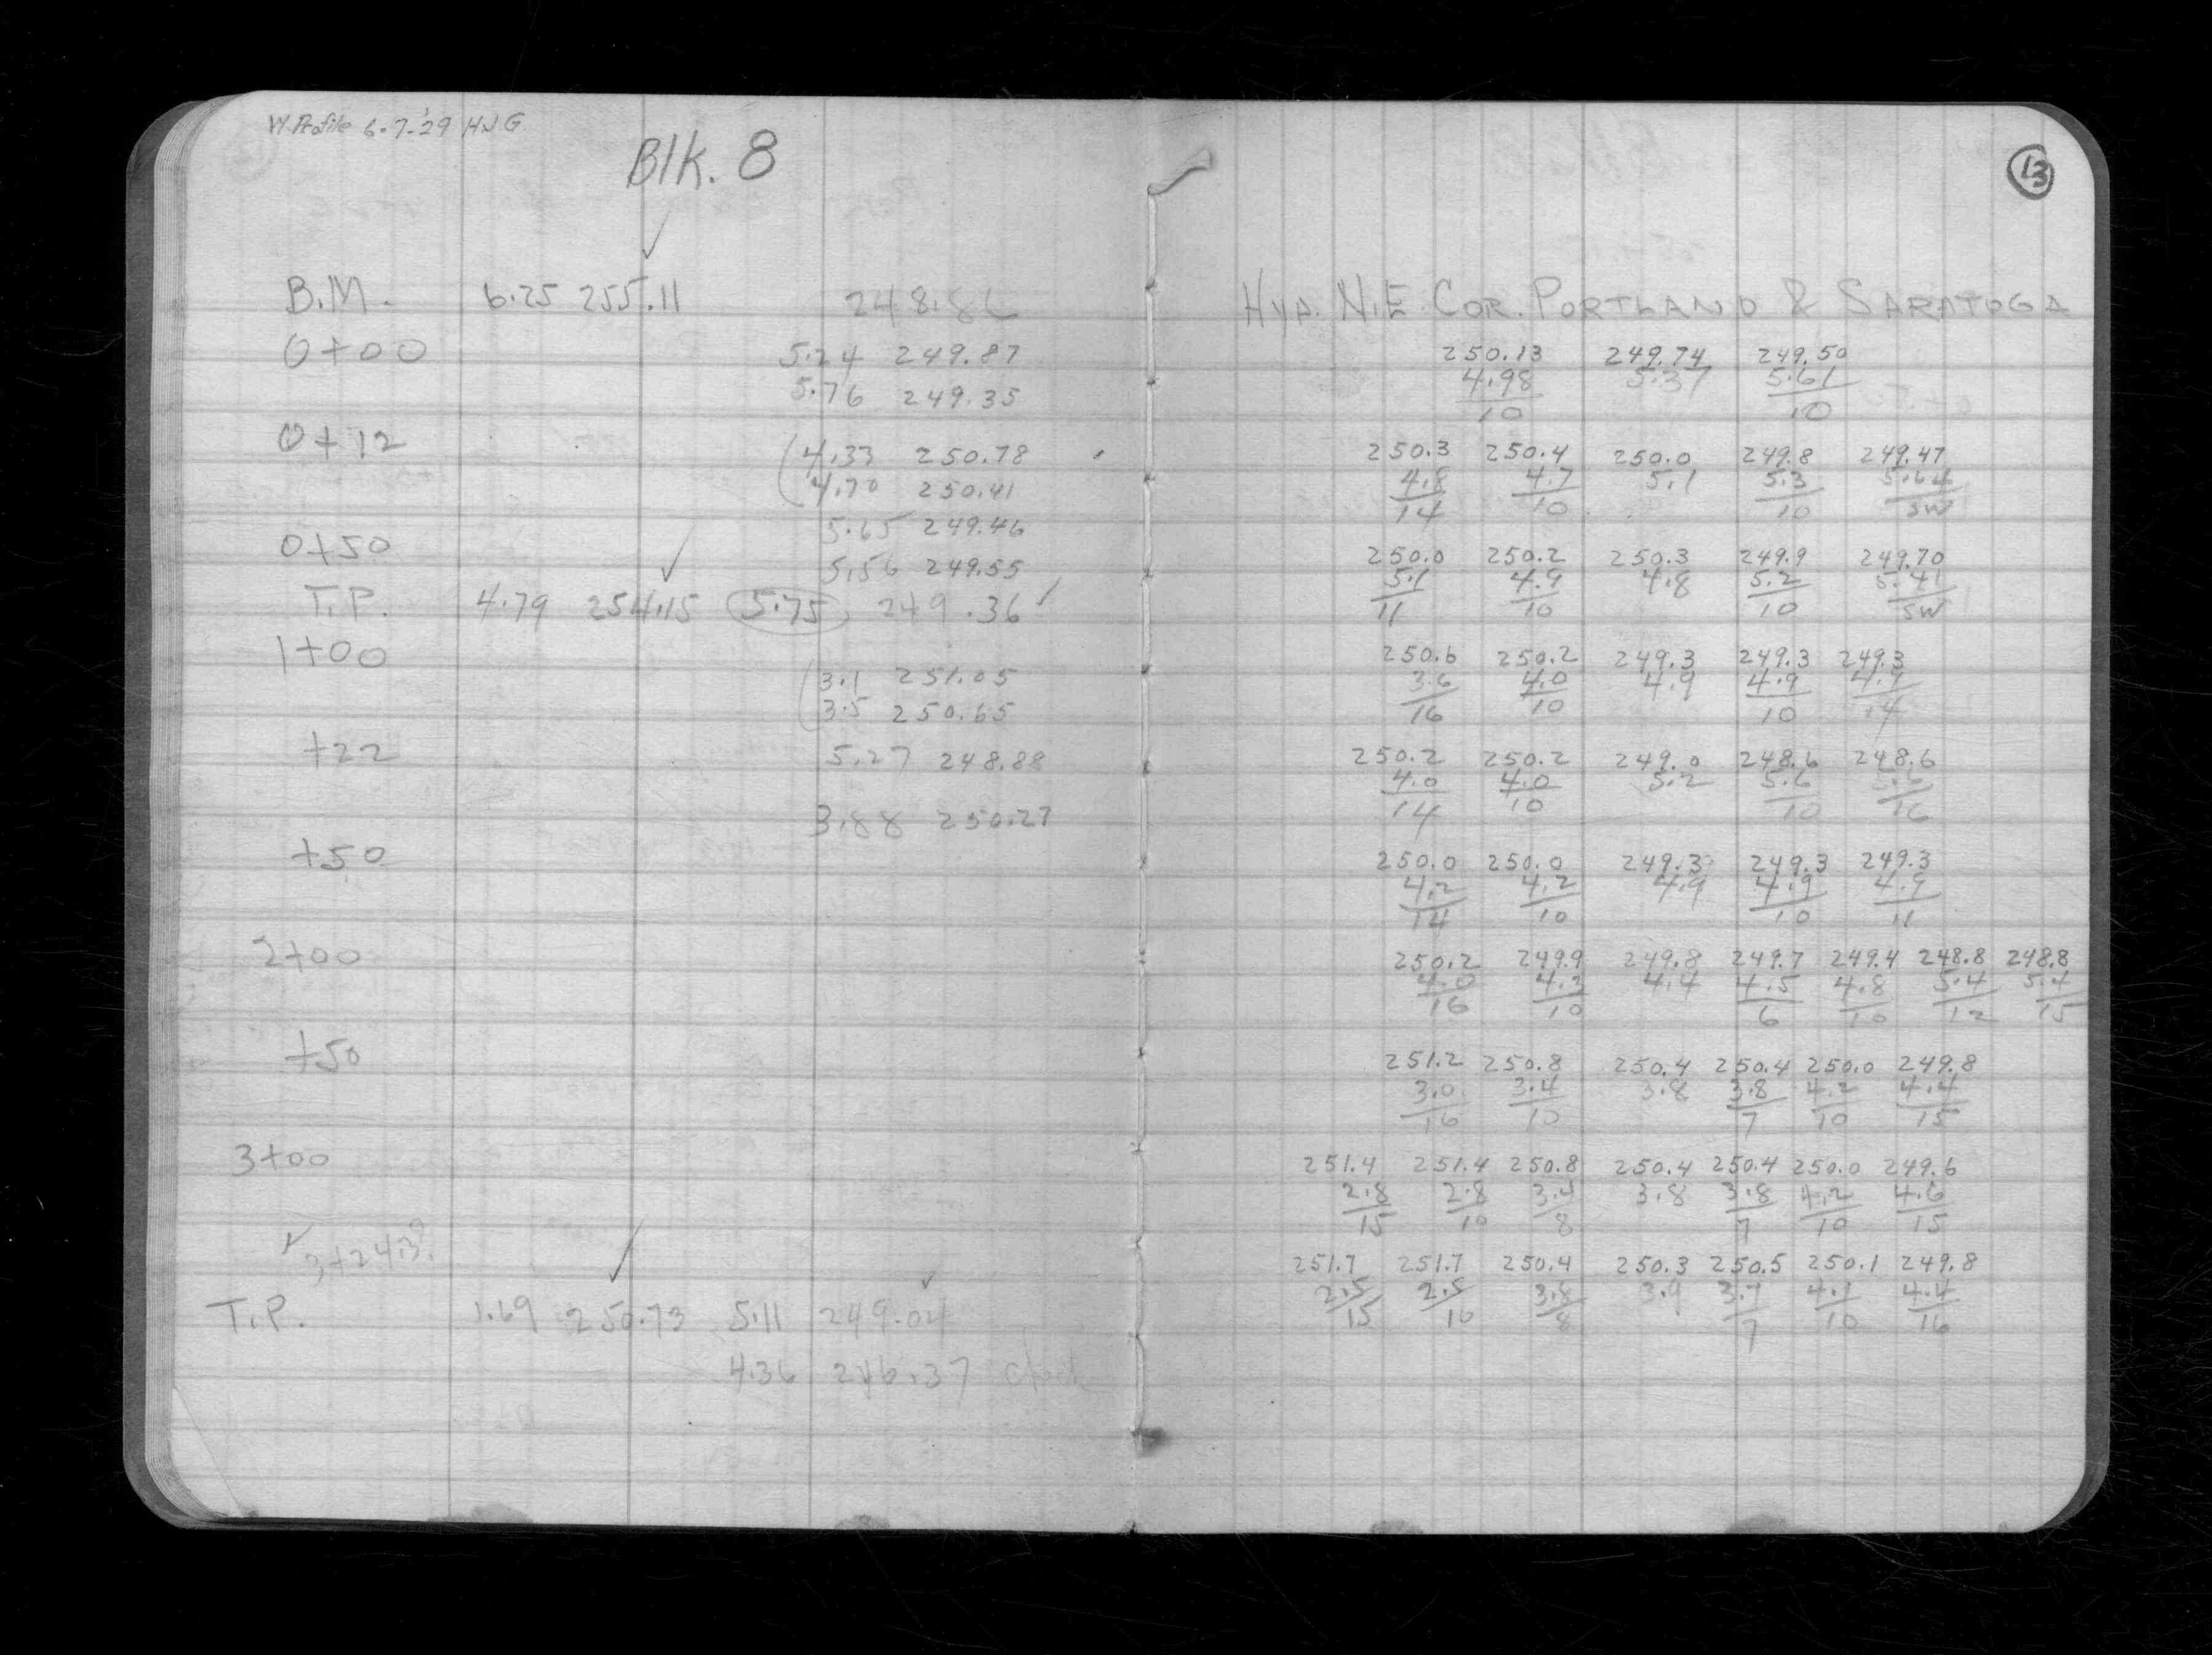 W. Profile 6-7-'29 H.J.G.
Blk. 8
13
B.M. 6.25 255.11 248.86 Hyd. N.E. Cor. Portland & Saratoga
0+00 5.24 249.87 250.13 249.74 249.50
5.76 249.35 4.98 5.37 5.61
10 10
0+12 (4.33 250.78 250.3 250.4 250.0 249.8 249.47
4.70 250.41 4.8 4.7 5.1 5.3 5.64
14 10 10 SW
5.65 249.46
0+50 5.56 249.55 250.0 250.2 250.3 249.9 249.70
5.1 4.9 4.8 5.2 5.41
T.P. 4.79 254.15 5.75 249.36 11 10 10 SW
1+00 250.6 250.2 249.3 249.3 249.3
(3.1 251.05 3.6 4.0 4.9 4.9 4.9
3.5 250.65 16 10 10 14
+22 5.27 248.88 250.2 250.2 249.0 248.6 248.6
4.0 4.0 5.2 5.6 5.6
3.88 250.27 14 10 10 16
+50 250.0 250.0 249.3 249.3 249.3
4.2 4.2 4.9 4.9 4.9
14 10 10 11
2+00 250.2 249.9 249.8 249.7 249.4 248.8 248.8
4.0 4.3 4.4 4.5 4.8 5.4 5.4
16 10 6 10 12 15
+50 251.2 250.8 250.4 250.4 250.0 249.8
3.0 3.4 3.8 3.8 4.2 4.4
16 10 7 10 15
3+00 251.4 251.4 250.8 250.4 250.4 250.0 249.6
2.8 2.8 3.4 3.8 3.8 4.2 4.6
15 10 8 7 10 15
3+24.3 251.7 251.7 250.4 250.3 250.5 250.1 249.8
2.5 2.5 3.8 3.9 3.7 4.1 4.4
15 10 8 7 10 16
T.P. 1.69 250.73 5.11 249.04
4.36 246.37 check